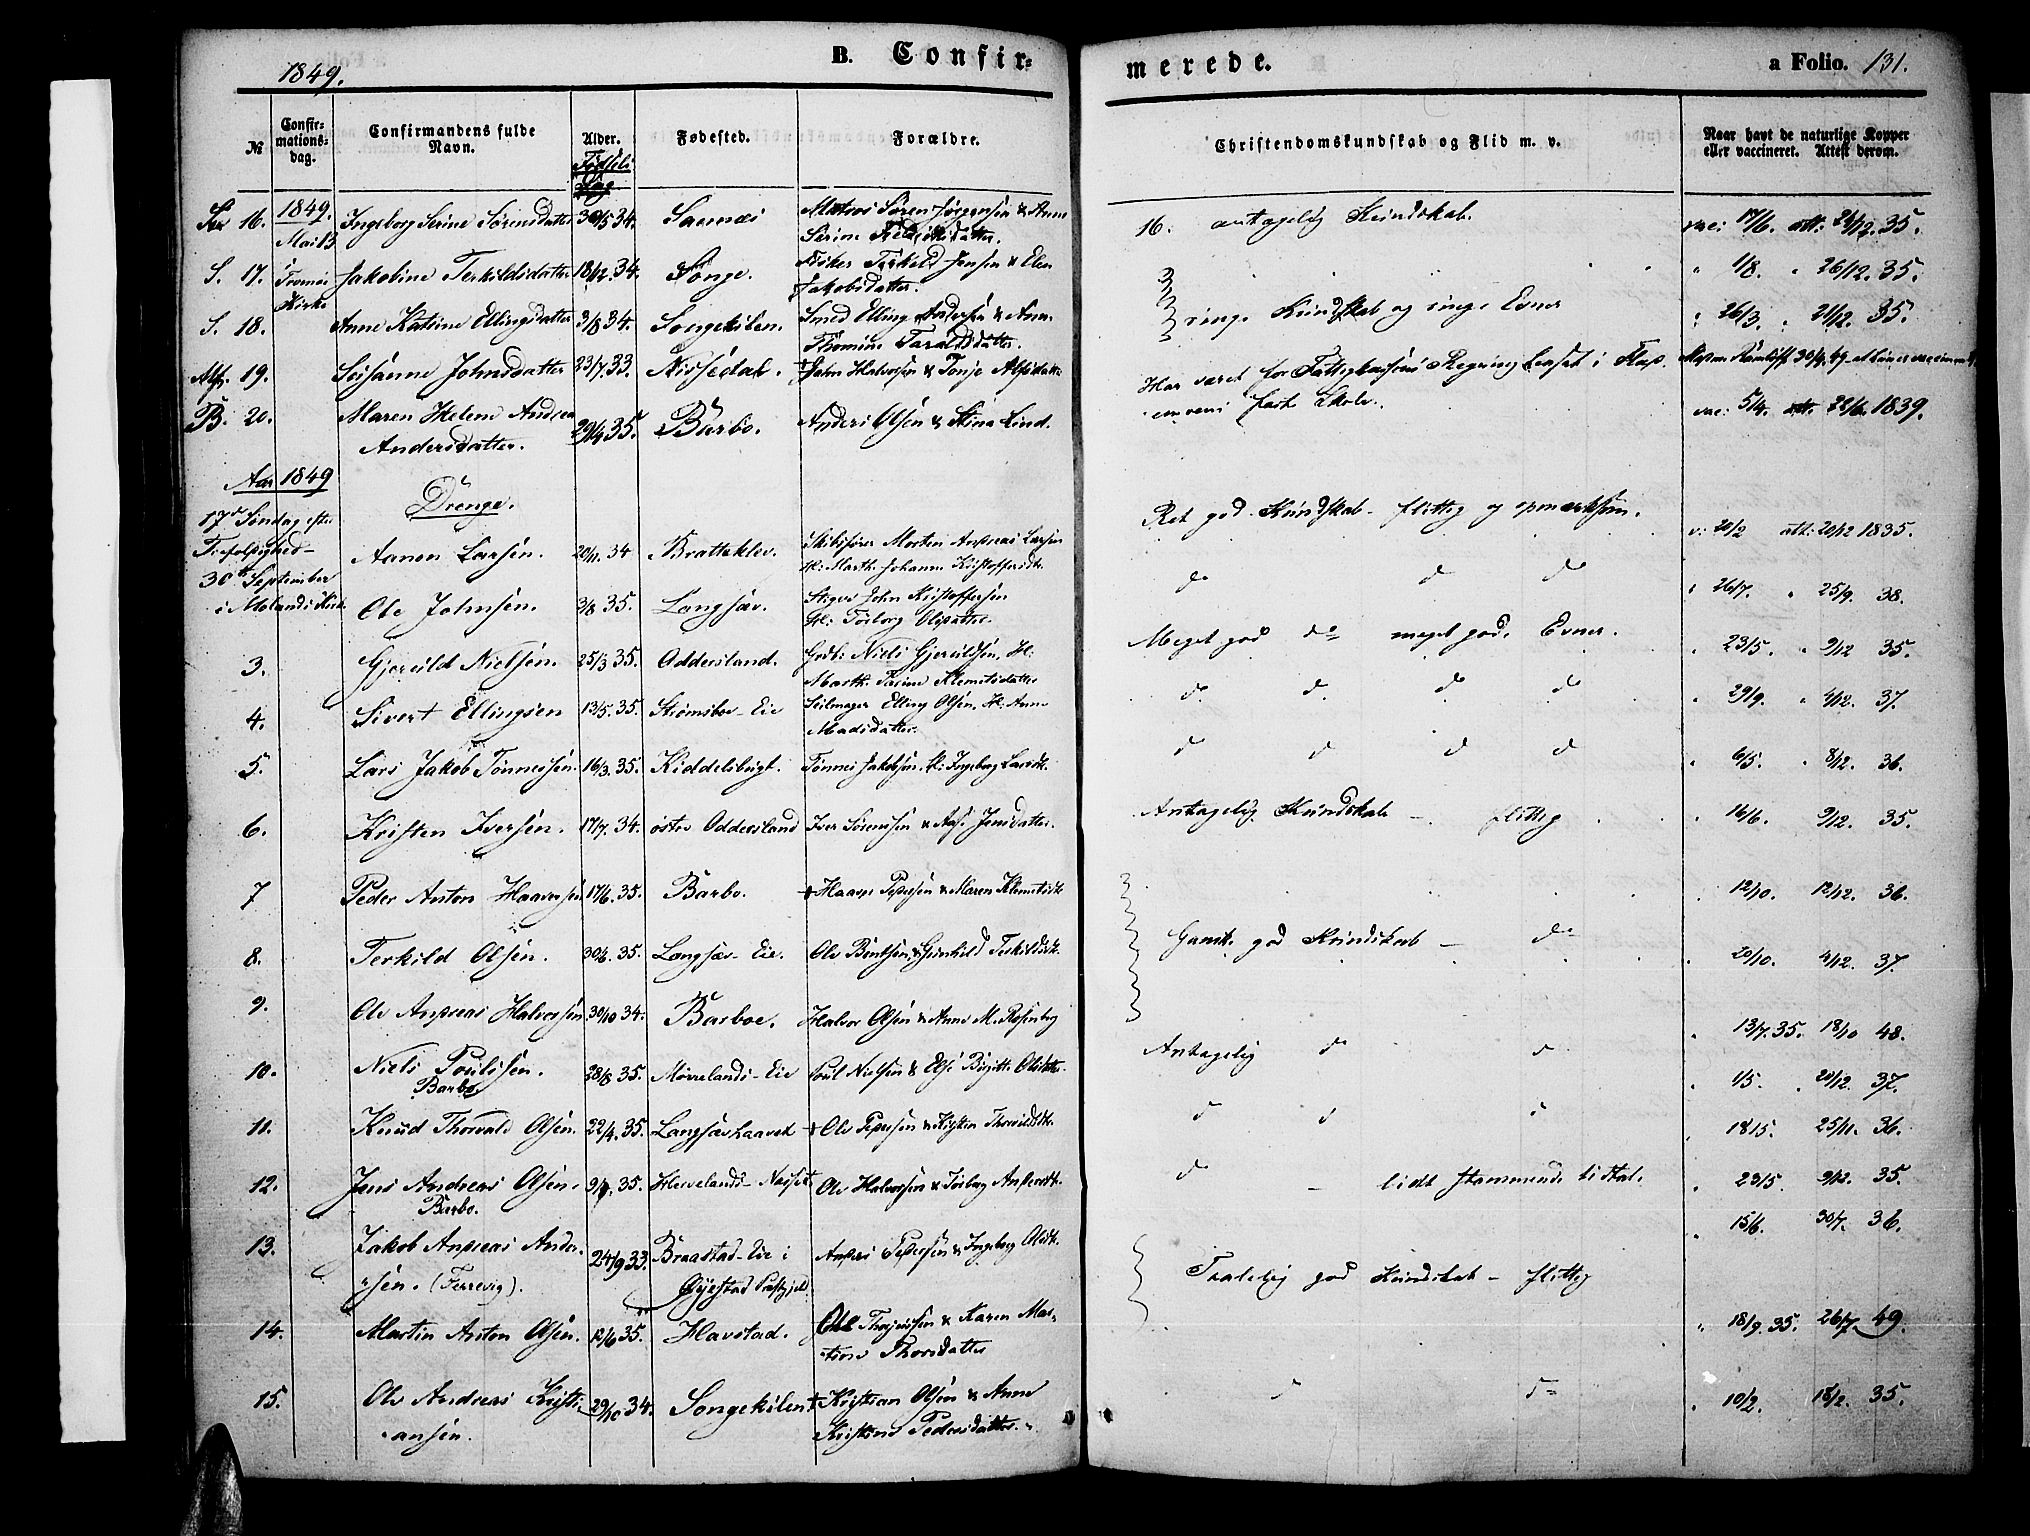 1849.
B. Confir=
merede.
a Folio. 131.
№
Confir=
mations=
dag.
Confirmandens fulde
Navn.
Alder.
Fødsels
Dag
Fødested.
Forældre.
Christendomskundskab og Flid m. v.
Naar havt de naturlige Kopper
eller vaccineret. Attest derom.
16. 1849. Mai 13 Ingeborg Serine Sørensdatter 30/5 34. Matros Søren Jørgensen & Anne
16. antagelig Kundskab. vac: 17/6. att: 29/12. 35.
S. 17. Tromøe Kirke Jakobine Terkildsdatter 18/12. 34. Songe. Fisker Terkild Jensen & Elen
Jakobsdatter.
" 1/8. " 26/12. 35.
S. 18. Anne Katrine Ellingsdatter 3/8 34. Songekilen. Smed Elling Andersen & Anne
Thomine Taraldsdatter.
ringe Kundskab og ringe Evner " 26/3. " 21/12. 35.
19. Susanne Johnsdatter 23/7. 33. Nissedal. † John Halvorsen & Tonje Alfsdatter
Har været for Fattigkassens Regning
fast Skole.
B. 20. Maren Helene Andrea
Andersdatter. 29/4 35. Barbo. Anders Olsen & Stina Lind.
vac: 5/4. att. 22/6. 1839.
Aar 1849
Drenge.
17de Søndag efter
Trefoldighed -
30te September
i Molands Kirke
Aanen Larsen. 20/11. 34 Bratteklev. Skibsfører Morten Andreas Larsen
H: Marth. Johanne Kristoffersdt.
Ret god Kundskab - flittig og opmærksom. v: 20/2 att: 20/12 1835.
Ole Johnsen. 3/8 35. Langsæv. John Kristoffersen
H: Torborg Olsdatter.
do do do " 26/7. " 25/9. 38.
3. Gjeruld Nielsen. 25/3 35. Oddersland. Grdb: Niels Gjeruldsen, H:
Marth. Terine Klemetsdatter
Meget god do meget gode Evner. " 23/5. " 9/12 35.
4. Sivert Ellingsen 13/5. 35. Strømsboe-Eie Seilmager Elling Olsen, H. Anne
Madsdatter.
do do do do " 29/9. " 4/12. 37.
5. Lars Jakob Tønnessen. 16/3. 35. Kiddelsbugt. Tønnes Jakobsen, H: Ingeborg Larsdt.
do do do do " 6/5. " 8/12. 36.
6. Kristen Iversen. 17/7. 34. østre Oddersland Iver Sørensen & Aase Jensdatter.
Antagelig Kundskab - flittig " 16/6. 9/12. 35.
7 Peder Anton Haaversen 17/6. 35. Barbo. † Haaver Pedersen & Maren Klemetsdt.
12/10. 12/12. 36.
8. Terkild Olsen. 30/6. 35. Langsæv-Eie. Ole Bentsen & Gunhild Terkildsdt.
Ganske god Kundskab - do " 20/10. 4/12. 37.
9. Ole Andreas Halvorsen 30/10 34. Barboe. Halvor Olsen & Anne M. Rosenberg
" 13/7. 35. 18/10 48.
10. Niels Poulsen.
Barbo 28/8 35. Mørelands-Eie Poul Nielsen & Else Birgitte Olsdatter.
Antagelig do do " 1/5. " 20/12. 37.
11. Knud Thorvald Olsen. 22/4. 35. Langsævhaavet † Ole Pedersen & Kirsten Thorvildsdt.
do do do " 18/5. 25/11. 36.
12. Jens Andreas Olsen.
Barbo. 35. Ole Halvorsen & Torborg Andersdt.
do - lidt stammende i Tal. " 23/5. 9/12. 35.
13. Jakob Andreas Ander-
"sen. (Ferrevig). 24/9 33. Braastad-Eie i
Øyestad Præstgjeld Anders Pedersen & Ingeborg Olsdt.
" 15/6. 30/7. 36.
Taalelig god Kundskab - flittig
14. Martin Anton Olsen. 12/6 35. Havstad. Ole & Karen Mar-
tine Thorsdatter
" 18/9. 35. 26/7. 49.
15. Ole Andreas Kristi-
ansen. 29/10 34. Songekilen † Kristian Olsen & Anne
Kristine Pedersdatter.
do do " 10/2. 18/12. 35.